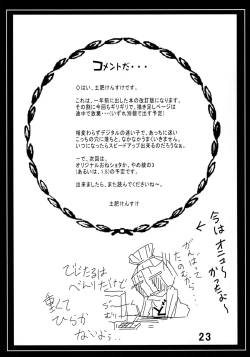 コメントだ・・・
Oはい、土肥けんすけです。
これは、一年前に出した本の改訂版になります。
その割に今回もギリギリで、描き足しページは
途中で放棄・・・(いずれ別個で出す予定)
相変わらずデジタルの迷い子で、あっちに迷い
こっちの穴に落ちと、なかなかうまくいきません。
いつになったらスピードアップ出来るのだろうなぁ。
～で、次回は、
オリジナルおねショタか、やの蚊の3
(あるいは、1.5)の予定です。
出来ましたら、また読んでくださいね～。
土肥けんすけ
がんばって
でじたるは
べんりだけど
重くて
ひらか
ないよぅ…
23